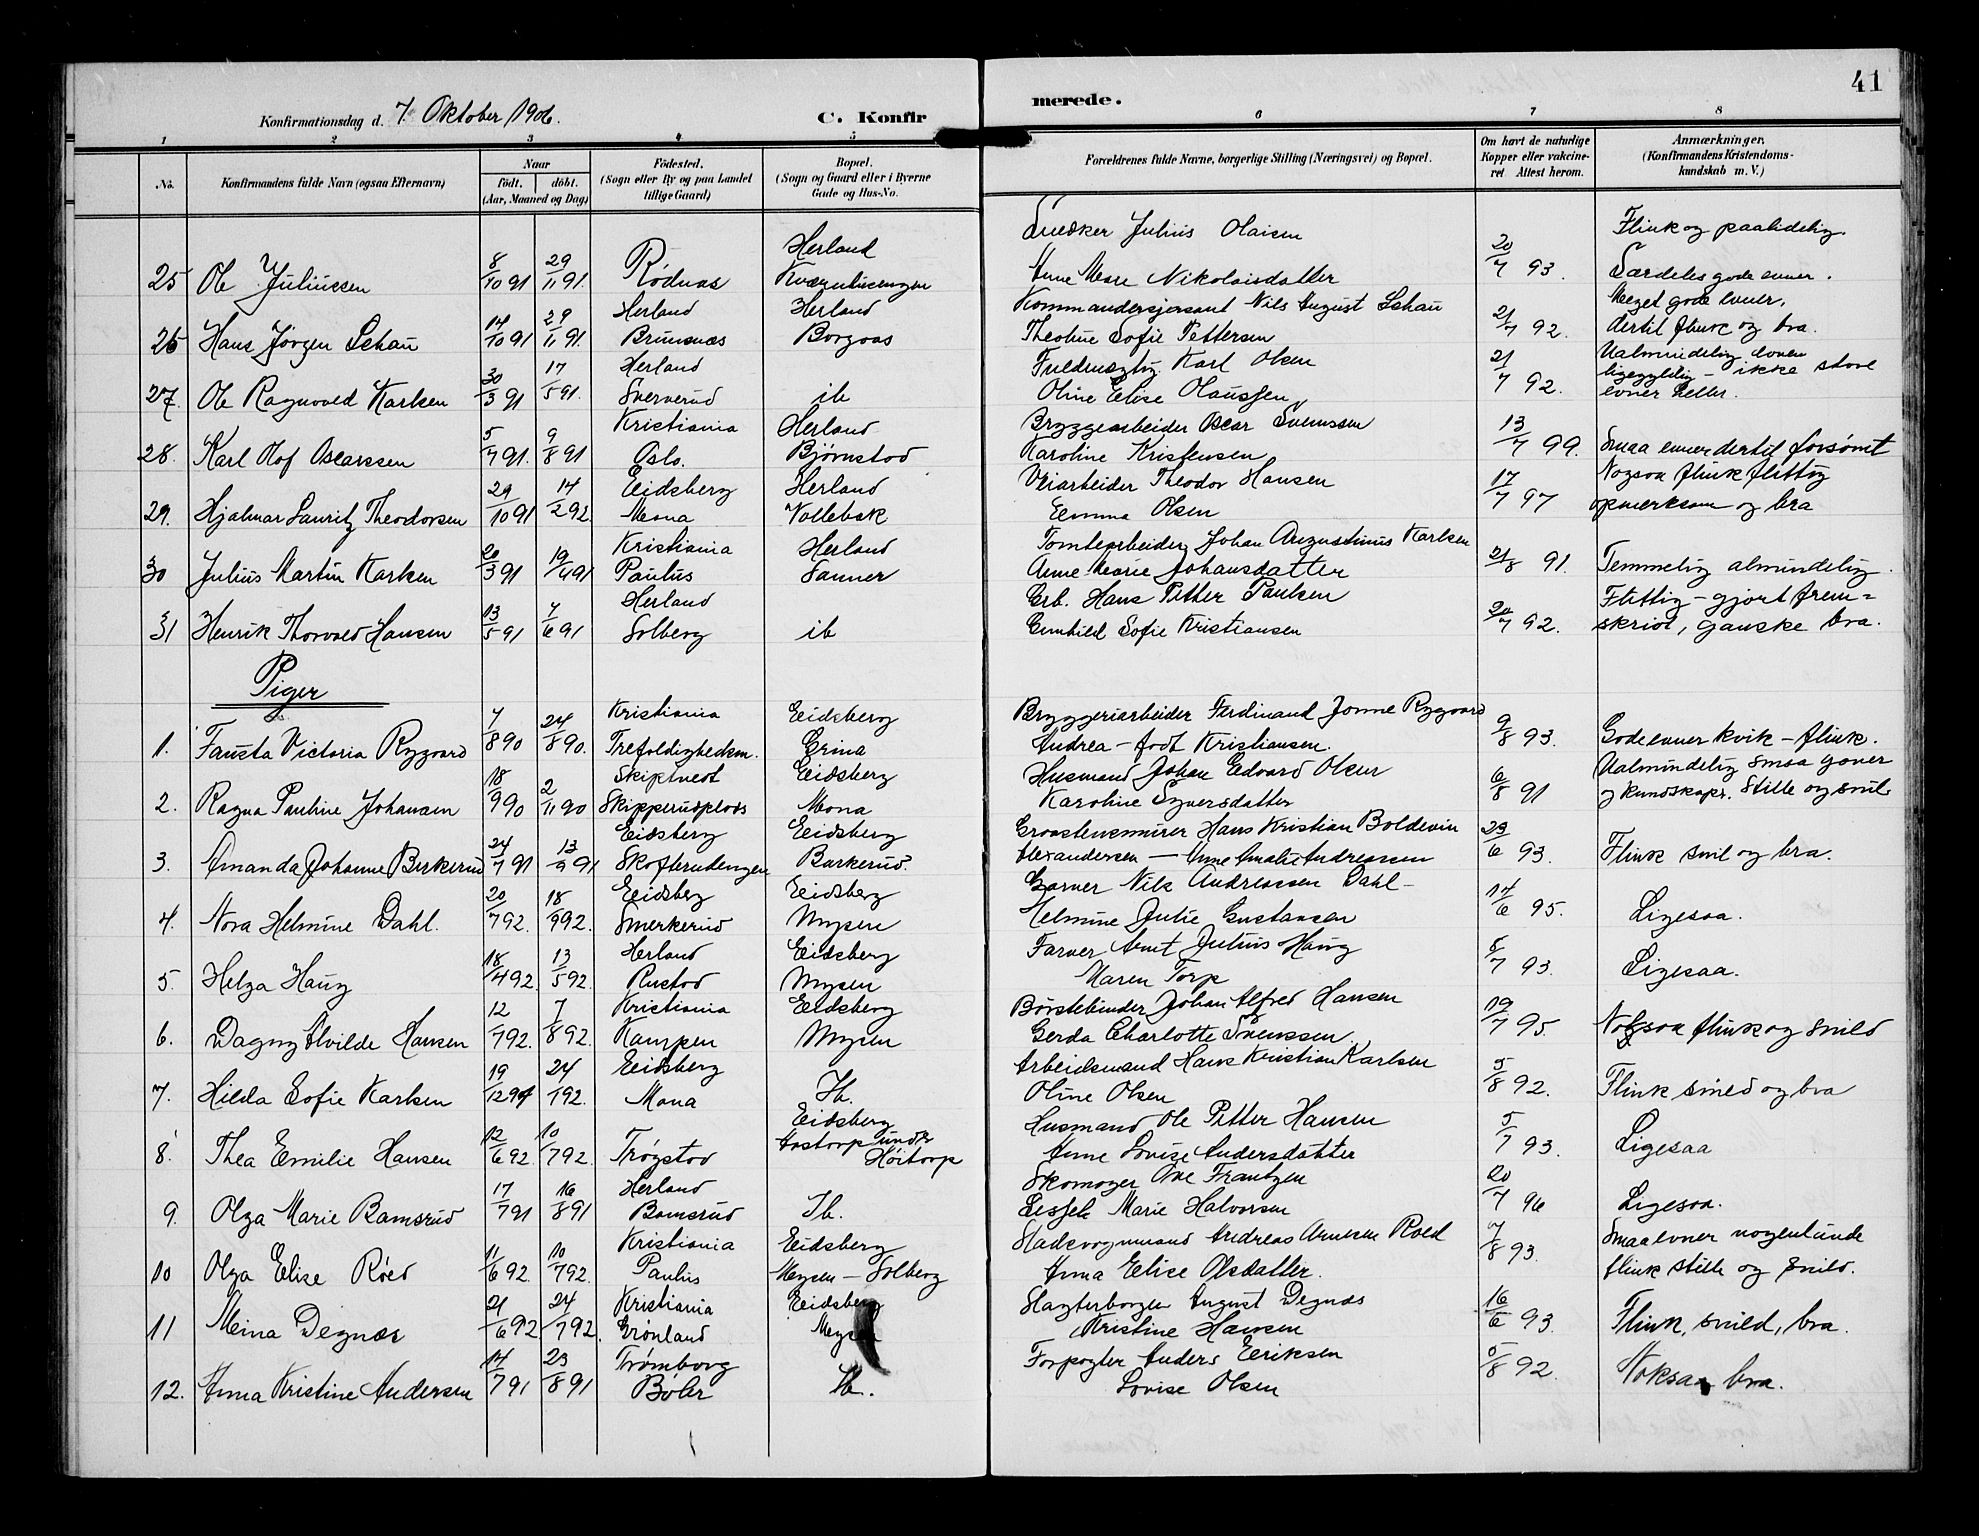 41
Konfirmationsdag d. 7. Oktober 1906.
C. Konfir
merede.
1 2 3 4 5 6 7 8
No.
Konfirmandens fulde Navn (ogsaa Efternavn)
Naar
født. døbt.
(Aar, Maaned og Dag)
Fødested.
(Sogn eller By og paa Landet
tillige Gaard)
Bopæl.
(Sogn og Gaard eller i Byerne
Gade og Hus-No.
Forældrenes fulde Navne, borgerlige Stilling (Næringsvei) og Bopæl.
Om havt de naturlige
Kopper eller vakcine-
ret Attest herom.
Anmærkninger.
(Konfirmandens Kristendoms-
kundskab m. V.)
Herland Snedker Julius Olaisen Flink og paalidelig.
25 Ole Juliussen 8/10 91 29/11 91. Rødnæs Anne Marie Nikolaisdatter 20/7 93. Særdeles gode evner.
Herland Herland Kommandersjersant Nils August Schau Meget gode evner,
26 Hans Jørgen Schau 14/10 91 29/11 91. Brunsnæs Borgaas Theoline Sofie Pettersen 21/7 92. dertil flink og bra.
Herland Karl Olsen Ualmindelig doven
ligegyldig - ikke store
27. Ole Ragnvald Karlsen 30/3 91 17/5 91. Sververud ib Oline Elise Olaussen 21/7 92. evner heller.
Kristiania Herland Bryggearbeider Oscar Svenssen
28. Karl Olof Oscarssen 5/7 91. 9/8 91 Oslo. Bjørnstad Karoline Kristensen 13/7 99. Smaa evner dertil forsømt
Eidsberg Herland Veiarbeider Theodor Hansen Nogsaa flink flittig
29. Hjalmar Lauritz Theodorsen 29/10 91 14/2 92. Mona Vollebæk Eemma Olsen 17/7 97 opmerksom og bra
Kristiania Herland Tomtearbeider Johan Augustinus Karlsen
30 Julius Martin Karlsen 20/3 91 19/4 91 Paulus Sanner Anne Marie Johansdatter 21/8 91. Temmelig almindelig.
Herland Grb. Hans Petter Paulsen Flittig - gjort frem=
31 Henrik Thorvald Hansen 13/5 91 7/6 91 Solberg ib Gunhild Sofie Kristiansen 20/7 92. skridt, ganske bra.
Piger
Kristiania Eidsberg Bryggeriarbeider Ferdinand Jonne Rygaard
1. Fausta Victoria Rygaard 7/8 90 24/8 90. Trefoldigheden. Grina Andrea - født Kristiansen. 9/8 93. Gode evner kvik - flink.
Skiptvedt Eidsberg Husmand Johan Edvard Olsen Ualmindelig smaa gaver
2. Ragna Pauline Johansen 18/9 90 2/11 90 Skipperudplads Mona Karoline Syversdatter 6/8 91 og kundskaper. Stille og snil.
Eidsberg Eidsberg Graastensmurer Hans Kristian Boldevin
3. Amanda Johanne Berkerud 24/7 91 13/9 91 Skofterudengen Barkerud. Alexandersen - Anne Amalie Andreassen 23/6 93. Flink snil og bra.
Eidsberg Eidsberg Garver Nils Andreassen Dahl -
4. Nora Helmine Dahl. 20/7 92. 18/9 92. Smerkerud Mysen Helmine Julie Gustavsen 14/6 95. Ligesaa.
Herland Eidsberg Farver Arnt Julius Haug
5. Helga Haug 18/4 92 13/5 92. Rustad Mysen Maren Torp 5/7 93. Ligesaa.
Kristiania Eidsberg Børstebinder Johan Alfred Hansen
6. Dagny Alvilde Hansen 12/7 92. 7/8 92. Kampen Mysen Gerda Charlotte Svenssen 19/7 95 Nogsaa flink og snild
Eidsberg Arbeidsmand Hans Kristian Karlsen
7. Hilda Sofie Karlsen 19/12 91 24/1 92. Mona Ib. Oline Olsen 5/8 92. Flink snild og bra
Eidsberg Husmand Ole Petter Hansen
8. Thea Emilie Hansen 12/6 92. 10/7 92. Trøgstad Aastorp under Høitorp Anne Lovise Andersdatter 5/7 93. Ligesaa
Herland Skomager Ove Frantzen
9. Olga Marie Ramsrud 17/7 91 16/8 91 Ramsrud Ib. Marie Halvorsen 20/7 96 Ligesaa.
Kristiania Eidsberg Andreas Arnesen Roed Smaa evner nogenlunde
10 Olga Elise Røed 11/6 92. 10/7 92. Paulus Mysen - Solberg Anna Elise Olsdatter. 7/8 93. flink stille og snild.
Kristiania Eidsberg August Degnæs
11 Meina Degnæs 21/6 92 24/7 92. Grønland Mysen Kristine Hansen 16/6 93. Flink, snild, bra.
Trømborg Forpagter Anders Eeriksen
12. Anna Kristine Andersen 14/7 91 23/8 91 Bøler Ib. Lovise Olsen 5/8 92. Noksaa bra.